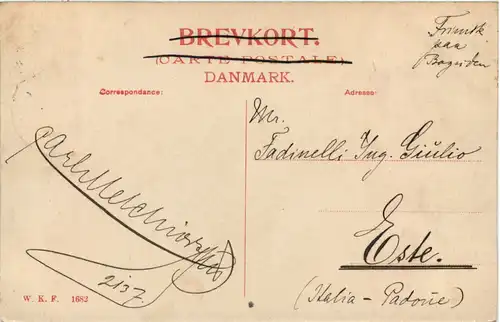 BREVKORT.
(CARTE POSTALE)
DANMARK.
Frimrk.
paa
Bagsiden
Correspondance:
Adresse:
Mr.
Fadinelli Ing. Giulio
Este.
(Italia - Padone)
Carl Melchiorsen
2137.
W. K. F. 1682